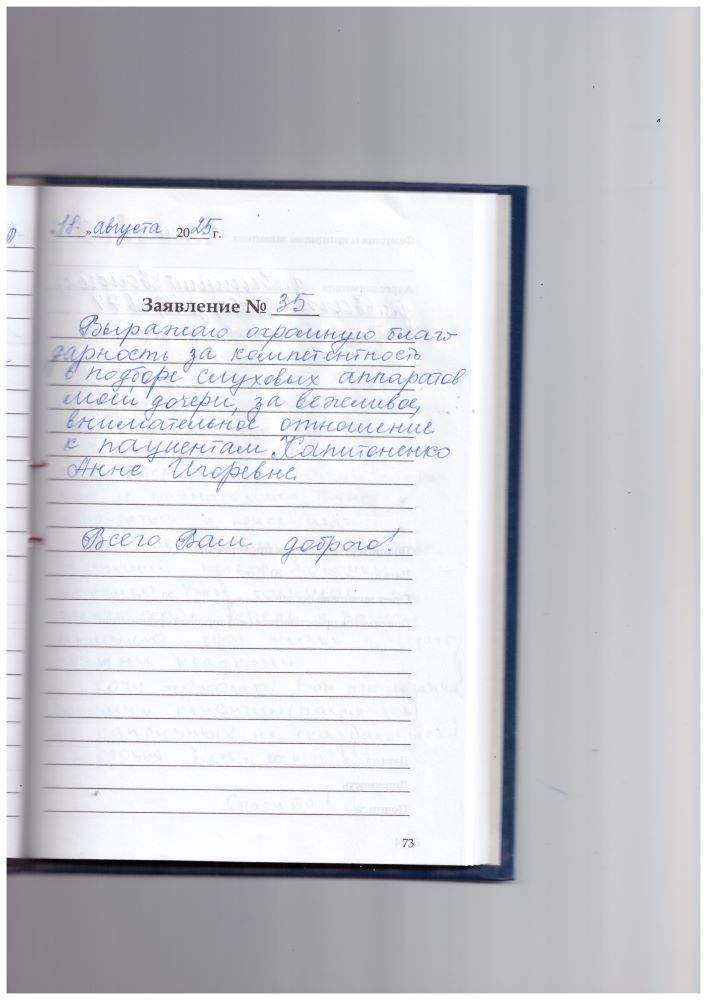 "18" августа 2025 г.
Заявление № 35
Выражаю огромную благо
дарность за компетентность
в подборе слуховых аппаратов
моей дочери, за вежливое,
внимательное отношение
к пациентам Хапитоненко
Анне Игоревне.
Всего Вам доброго!
73